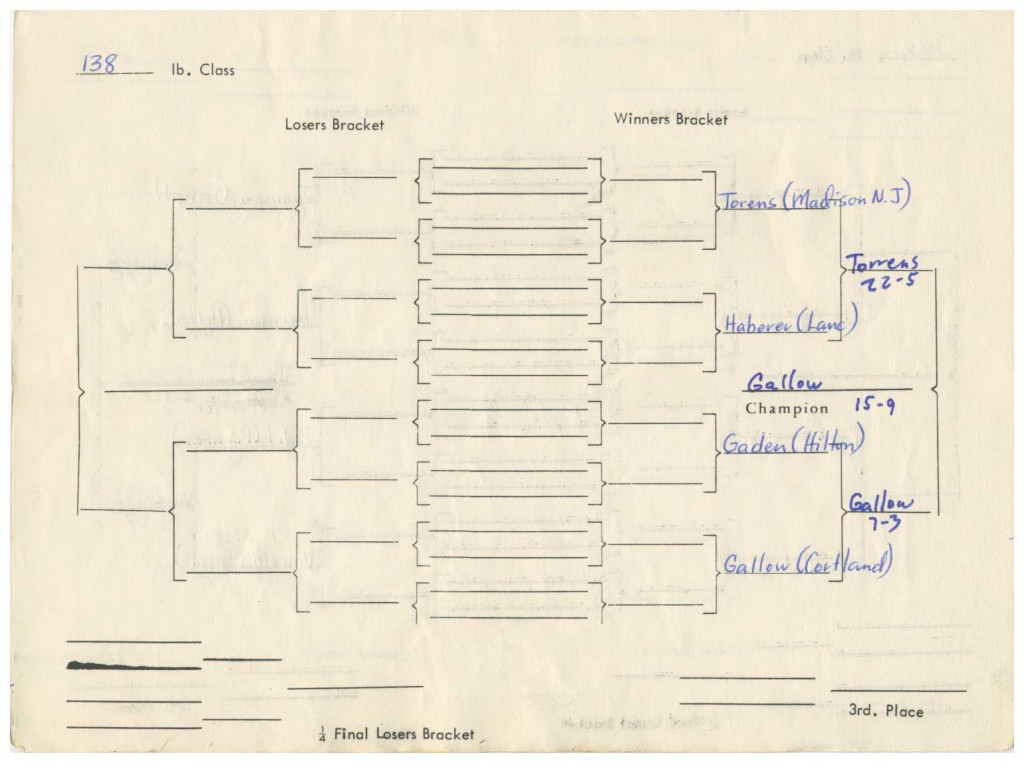 138 lb. Class
Losers Bracket
Winners Bracket
Torens (Madison N.J)
Torrens
22-5
Haberer (Lanc)
Gallow
Champion 15-9
Gaden (Hilton)
Gallow
7-3
Gallow (Cortland)
3rd. Place
¼ Final Losers Bracket